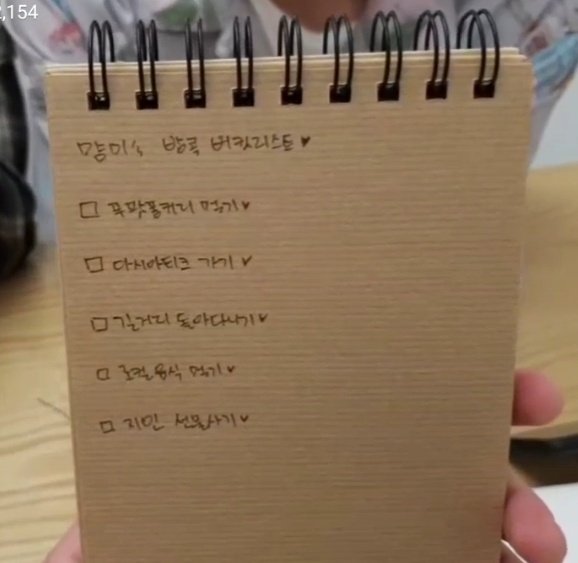 ,154
맘미손 방콕 버킷리스트♥
□ 푸팟퐁커리 먹기♥
□ 다시아티크 가기♥
□ 길거리 돌아다니기♥
□ 로컬음식 먹기♥
□ 지인 선물사기♥